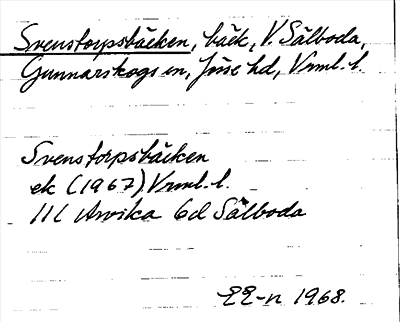 Svenstorpsbäcken, bäck, V. Sälboda,
Gunnarskogs sn, Jösse hd, Vrml. l.
Svenstorpsbäcken
ek (1967) Vrml. l.
11C Arvika 6d Sälboda
EE-n 1968.